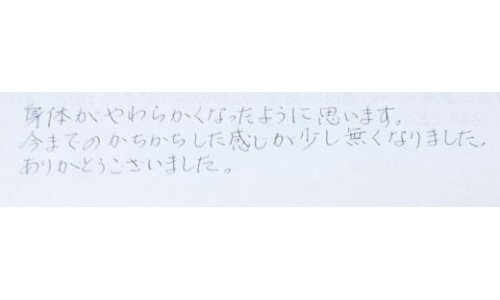 身体がやわらかくなったように思います。
今までのかちかちした感じが少し無くなりました。
ありがとうございました。